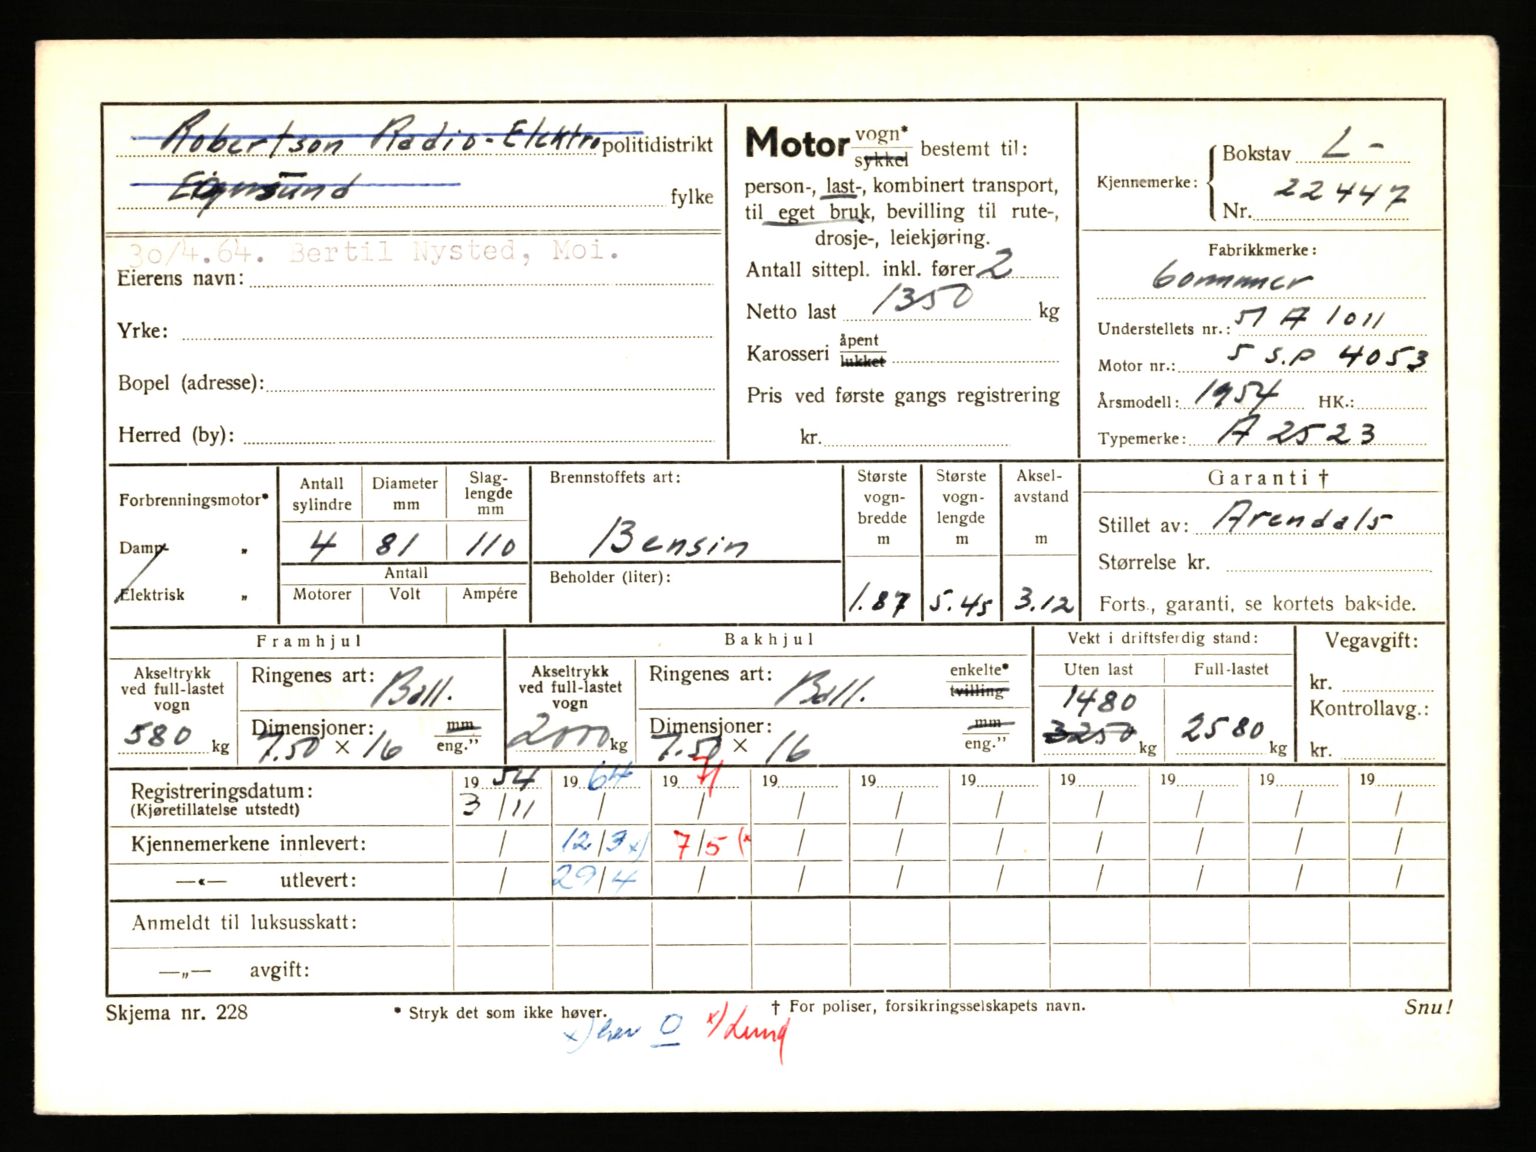 Robertson Radio-Elektro politidistrikt
Egersund fylke
30/4.64. Bertil Nysted, Moi.
Eierens navn:
Yrke:
Bopel (adresse):
Herred (by):
Motor vogn* sykkel bestemt til:
person-, last-, kombinert transport,
til eget bruk, bevilling til rute-,
drosje-, leiekjøring.
Antall sittepl. inkl. fører 2
Netto last 1350 kg
Karosseri åpent lukket
Pris ved første gangs registrering
kr.
Kjennemerke: Bokstav L-
Nr. 22447
Fabrikkmerke:
Commer
Understellets nr.: 51 A 1011
Motor nr.: 5 S.P 4053
Årsmodell: 1954 HK.:
Typemerke: A 2523
Forbrenningsmotor*
Damp "
Elektrisk "
Antall sylindre Diameter mm Slag-lengde mm
4 81 110
Antall
Motorer Volt Ampére
Brennstoffets art:
Bensin
Beholder (liter):
Største vogn-bredde m Største vogn-lengde m Aksel-avstand m
1.87 5.45 3.12
Garanti †
Stillet av: Arendals
Størrelse kr.
Forts., garanti, se kortets bakside.
Framhjul
Akseltrykk ved full-lastet vogn
580 kg
Ringenes art: Ball.
Dimensjoner: mm
7.50 × 16 eng."
Bakhjul
Akseltrykk ved full-lastet vogn
2000 kg
Ringenes art: Ball. enkelte* tvilling
Dimensjoner: mm
7.50 × 16 eng."
Vekt i driftsferdig stand:
Uten last Full-lastet
1480
3250 kg 2580 kg
Vegavgift:
kr.
Kontrollavg.:
kr.
Registreringsdatum: 19 54 19 64 19 71 19 19 19 19 19 19 19
(Kjøretillatelse utstedt) 3/11 / / / / / / / / /
Kjennemerkene innlevert: / 12/3 x) 7/5 (x / / / / / / /
—«— utlevert: / 29/4 / / / / / / / /
Anmeldt til luksusskatt:
—„— avgift:
Skjema nr. 228 * Stryk det som ikke høver. † For poliser, forsikringsselskapets navn. Snu!
x) her O x) Lund